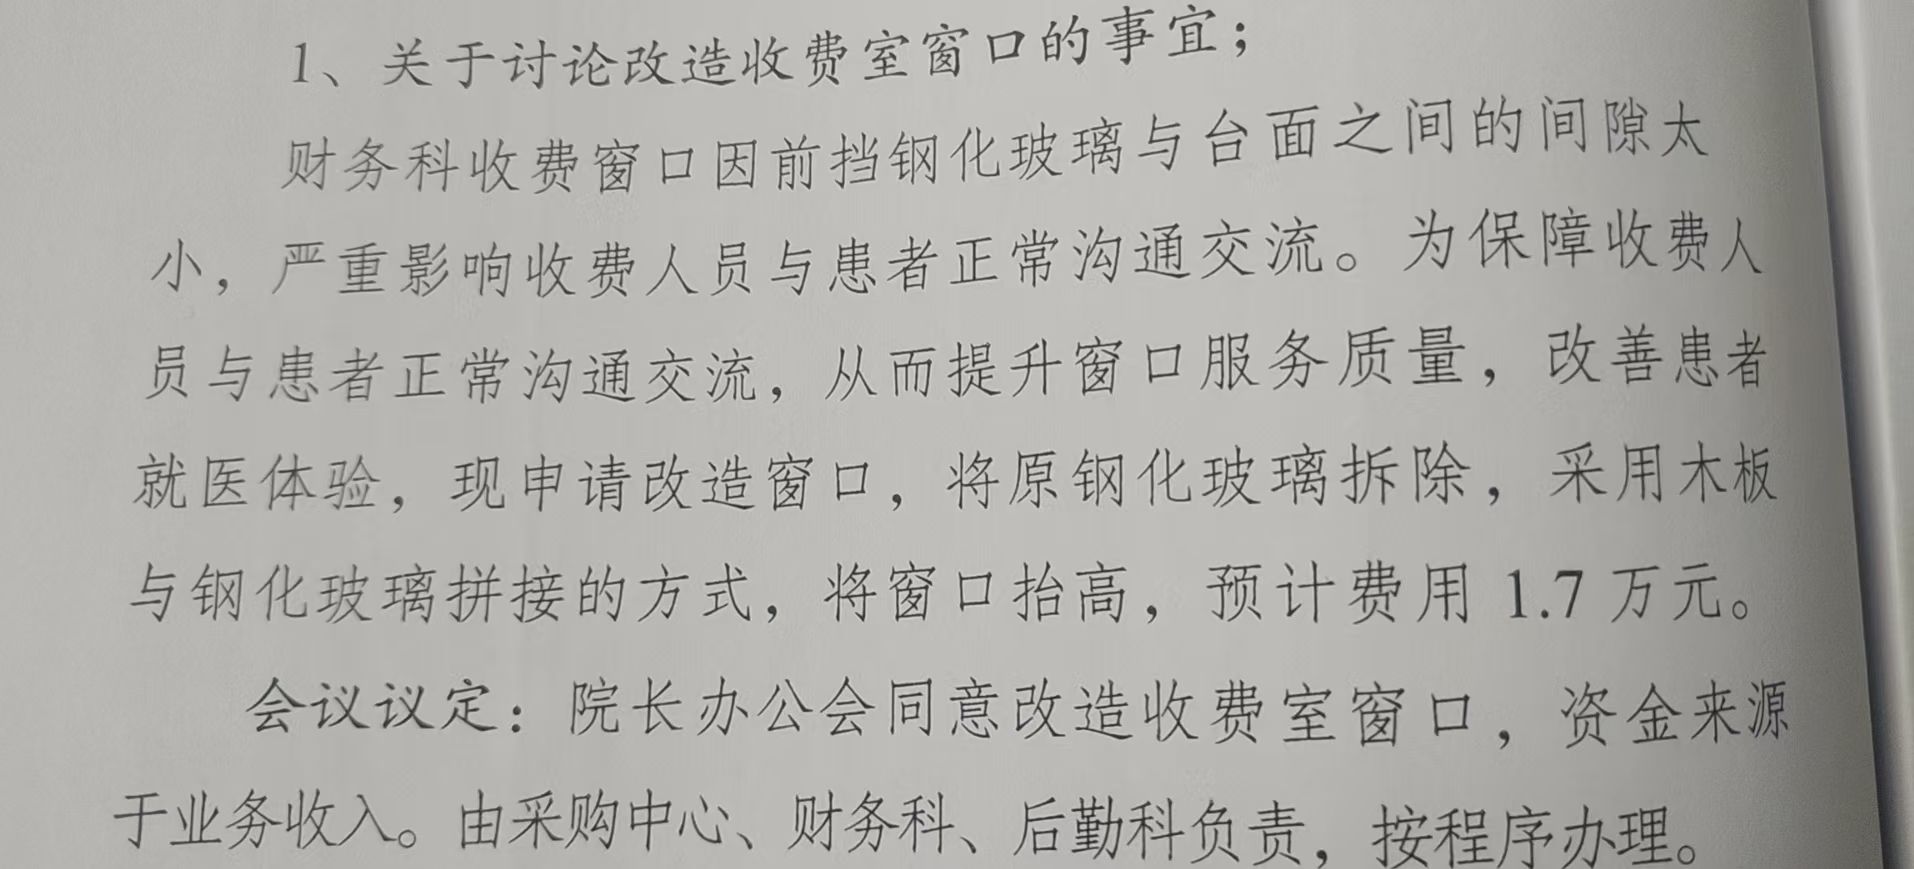 1、关于讨论改造收费室窗口的事宜；
财务科收费窗口因前挡钢化玻璃与台面之间的间隙太
小，严重影响收费人员与患者正常沟通交流。为保障收费人
员与患者正常沟通交流，从而提升窗口服务质量，改善患者
就医体验，现申请改造窗口，将原钢化玻璃拆除，采用木板
与钢化玻璃拼接的方式，将窗口抬高，预计费用 1.7 万元。
会议议定：院长办公会同意改造收费室窗口，资金来源
于业务收入。由采购中心、财务科、后勤科负责，按程序办理。